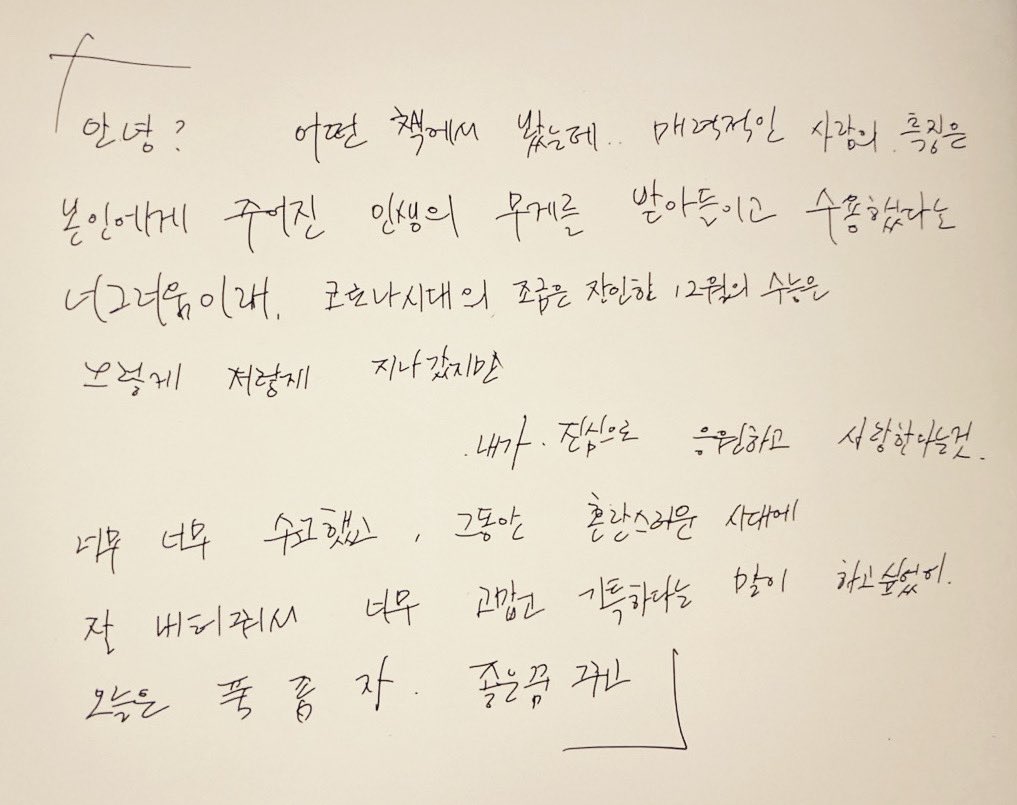 안녕? 어떤 책에서 봤는데.. 매력적인 사람의 특징은
본인에게 주어진 인생의 무게를 받아들이고 수용했다는
너그러움이래. 코로나시대의 조금은 잔인한 12월의 수능은
그렇게 저렇게 지나갔지만
내가 진심으로 응원하고 사랑한다는것.
너무 너무 수고했고, 그동안 혼란스러운 시대에
잘 버텨줘서 너무 고맙고 기특하다는 말이 하고싶었어.
오늘은 푹 좀 자. 좋은꿈 꾸고